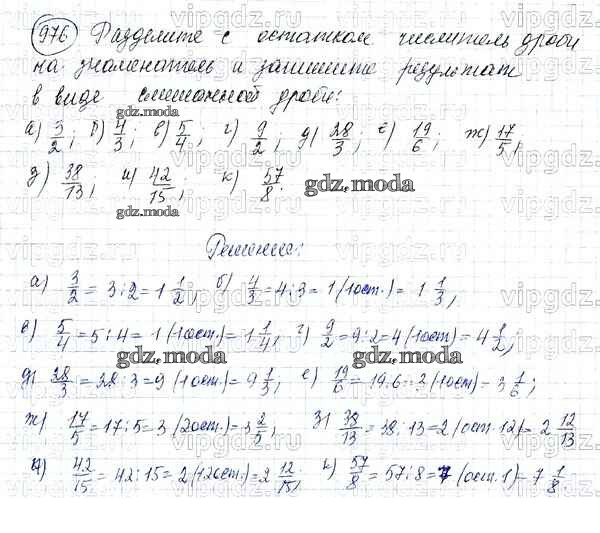 976 Разделите с остатком числитель дроби
на знаменатель и запишите результат
в виде смешанной дроби:
а) 3/2; б) 4/3; в) 5/4; г) 9/2; д) 28/3; е) 19/6; ж) 17/5;
з) 38/13; и) 42/15; к) 57/8.
Решение:
а) 3/2 = 3:2 = 1 1/2, б) 4/3 = 4:3 = 1 (1 ост.) = 1 1/3,
в) 5/4 = 5:4 = 1 (1 ост.) = 1 1/4; г) 9/2 = 9:2 = 4 (1 ост) = 4 1/2,
д) 28/3 = 28:3 = 9 (1 ост.) = 9 1/3, е) 19/6 = 19:6 = 3 (1 ост) = 3 1/6;
ж) 17/5 = 17:5 = 3 (2 ост.) = 3 2/5, з) 38/13 = 38:13 = 2 (ост. 12) = 2 12/13
и) 42/15 = 42:15 = 2 (12 ост.) = 2 12/15, к) 57/8 = 57:8 = 7 (ост. 1) = 7 1/8.
gdz.moda
vipgdz.ru